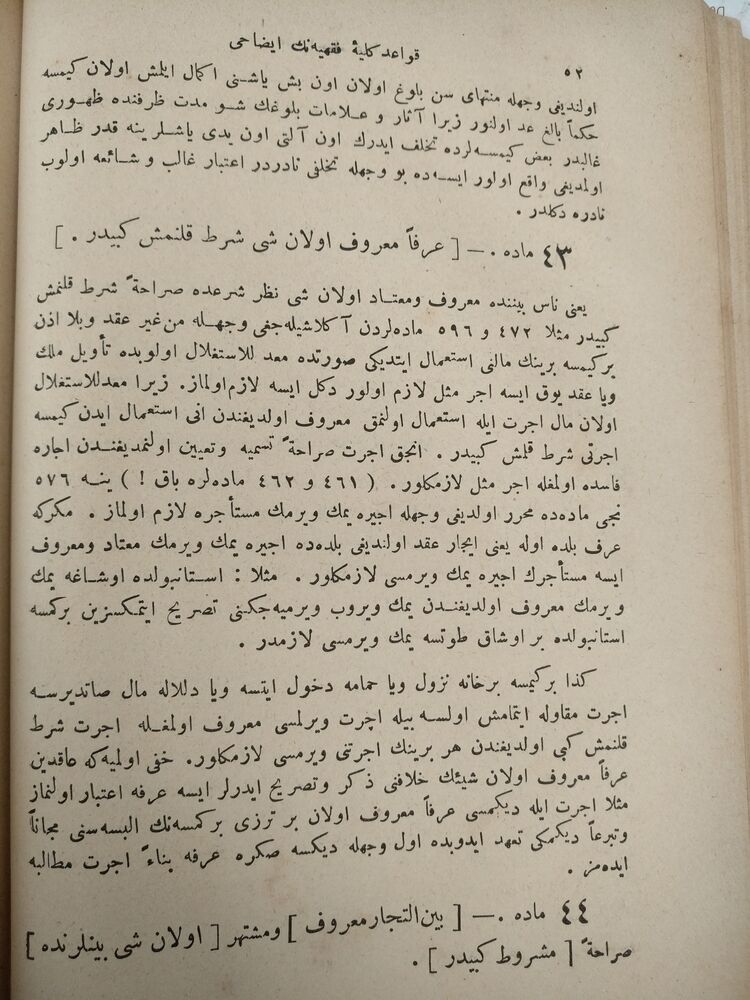 ٥٢
قواعد كلیهٔ فقهیه‌نك ایضاحی
اولندیغی وجهله منتهای سن بلوغ اولان اون بش یاشنی اكمال ایلمش اولان كیمسه
حكماً بالغ عد اولنور زیرا آثار و علامات بلوغك شو مدت ظرفنده ظهوری
غالبدر بعض كیمسه‌لرده تخلف ایدرك اون آلتی اون یدی یاشلرینه قدر ظاهر
اولمدیغی واقع اولور ایسه‌ده بو وجهله تخلفی نادردر اعتبار غالب و شائعه اولوب
نادره دكلدر .
٤٣ ماده . — [ عرفاً معروف اولان شی شرط قلنمش كبیدر . ]
یعنی ناس بیننده معروف ومعتاد اولان شی نظر شرعده صراحةً شرط قلنمش
كبیدر مثلا ٤٧٢ و ٥٩٦ ماده‌لردن آكلاشیله‌جغی وجهله من‌غیر عقد وبلا اذن
بركیمسه برینك مالنی استعمال ایتدیكی صورتده معد للاستغلال اولوبده تأویل ملك
ویا عقد یوق ایسه اجر مثل لازم اولور دكل ایسه لازم‌اولماز. زیرا معدللاستغلال
اولان مال اجرت ایله استعمال اولنمق معروف اولدیغندن انی استعمال ایدن كیمسه
اجرتی شرط قلمش كبیدر . انجق اجرت صراحةً تسمیه وتعیین اولنمدیغندن اجاره
فاسده اولمغله اجر مثل لازمكلور . ( ٤٦١ و ٤٦٢ ماده‌لره باق ! ) ینه ٥٧٦
نجی ماده‌ده محرر اولدیغی وجهله اجیره یمك ویرمك مستأجره لازم اولماز . مكركه
عرف بلده اوله یعنی ایجار عقد اولندیغی بلده‌ده اجیره یمك ویرمك معتاد ومعروف
ایسه مستأجرك اجیره یمك ویرمسی لازمكلور . مثلا : استانبولده اوشاغه یمك
ویرمك معروف اولدیغندن یمك ویروب ویرمیه‌جكنی تصریح ایتمكسزین بركمسه
استانبولده بر اوشاق طوتسه یمك ویرمسی لازمدر .
كذا بركیمسه برخانه نزول ویا حمامه دخول ایتسه ویا دلاله مال صاتدیرسه
اجرت مقاوله ایتمامش اولسه بیله اجرت ویرلمسی معروف اولمغله اجرت شرط
قلنمش كبی اولدیغندن هر برینك اجرتنی ویرمسی لازمكلور. خفی اولمیه‌كه عاقدین
عرفاً معروف اولان شیئك خلافنی ذكر وتصریح ایدرلر ایسه عرفه اعتبار اولنماز
مثلا اجرت ایله دیكمسی عرفاً معروف اولان بر ترزی بركمسه‌نك البسه‌سنی مجاناً
وتبرعاً دیكمكی تعهد ایدوبده اول وجهله دیكسه صكره عرفه بناءً اجرت مطالبه
ایده‌مز .
٤٤ ماده . — [ بین‌التجار معروف ] ومشتهر [ اولان شی بینلرنده ]
صراحةً [ مشروط كبیدر ] .